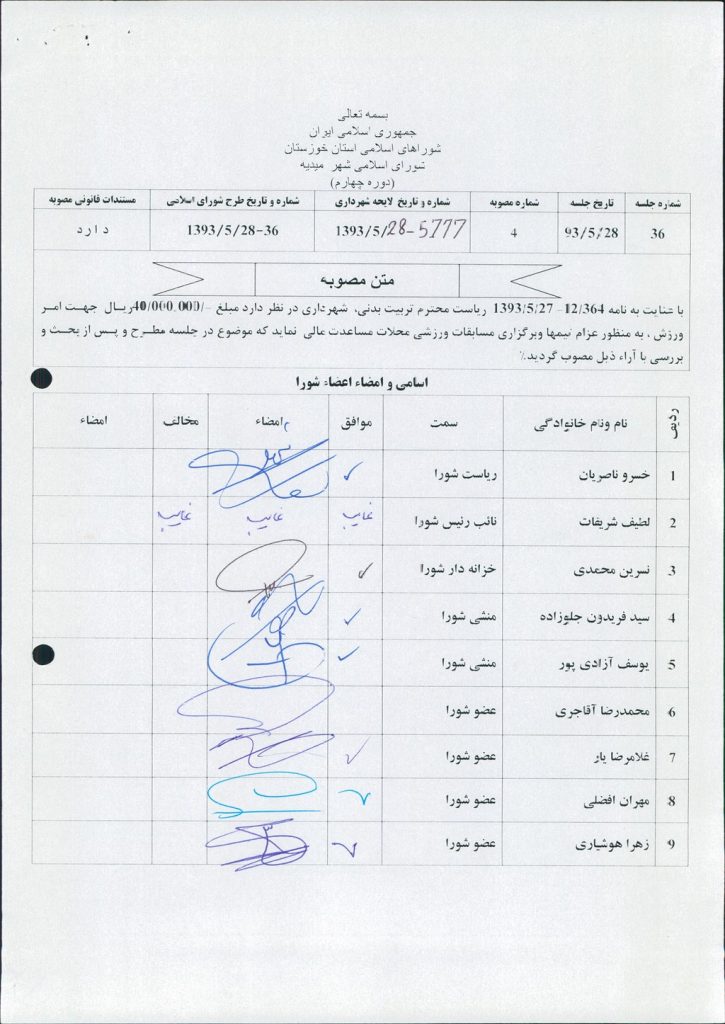 بسمه تعالی
جمهوری اسلامی ایران
شوراهای اسلامی استان خوزستان
شورای اسلامی شهر میدیه
(دوره چهارم)
شماره جلسه تاریخ جلسه شماره مصوبه شماره و تاریخ لایحه شهرداری شماره و تاریخ طرح شورای اسلامی مستندات قانونی مصوبه
36 93/5/28 4 1393/5/28-5777 1393/5/28-36 دارد
متن مصوبه
با عنایت به نامه 12/364 – 1393/5/27 ریاست محترم تربیت بدنی، شهرداری در نظر دارد مبلغ -/40/000.000ریال جهت امر
ورزش ، به منظور عزام تیمها وبرگزاری مسابقات ورزشی محلات مساعدت مالی نماید که موضوع در جلسه مطرح و پس از بحث و
بررسی با آراء ذیل مصوب گردید٪
اسامی و امضاء اعضاء شورا
ردیف نام ونام خانوادگی سمت موافق امضاء مخالف امضاء
1 خسرو ناصریان ریاست شورا ✓
2 لطیف شریفات نائب رئیس شورا غایب غایب غایب
3 نسرین محمدی خزانه دار شورا ✓
4 سید فریدون جلوزاده منشی شورا ✓
5 یوسف آزادی پور منشی شورا ✓
6 محمدرضا آقاجری عضو شورا
7 غلامرضا یار عضو شورا ✓
8 مهران افضلی عضو شورا ✓
9 زهرا هوشیاری عضو شورا ✓